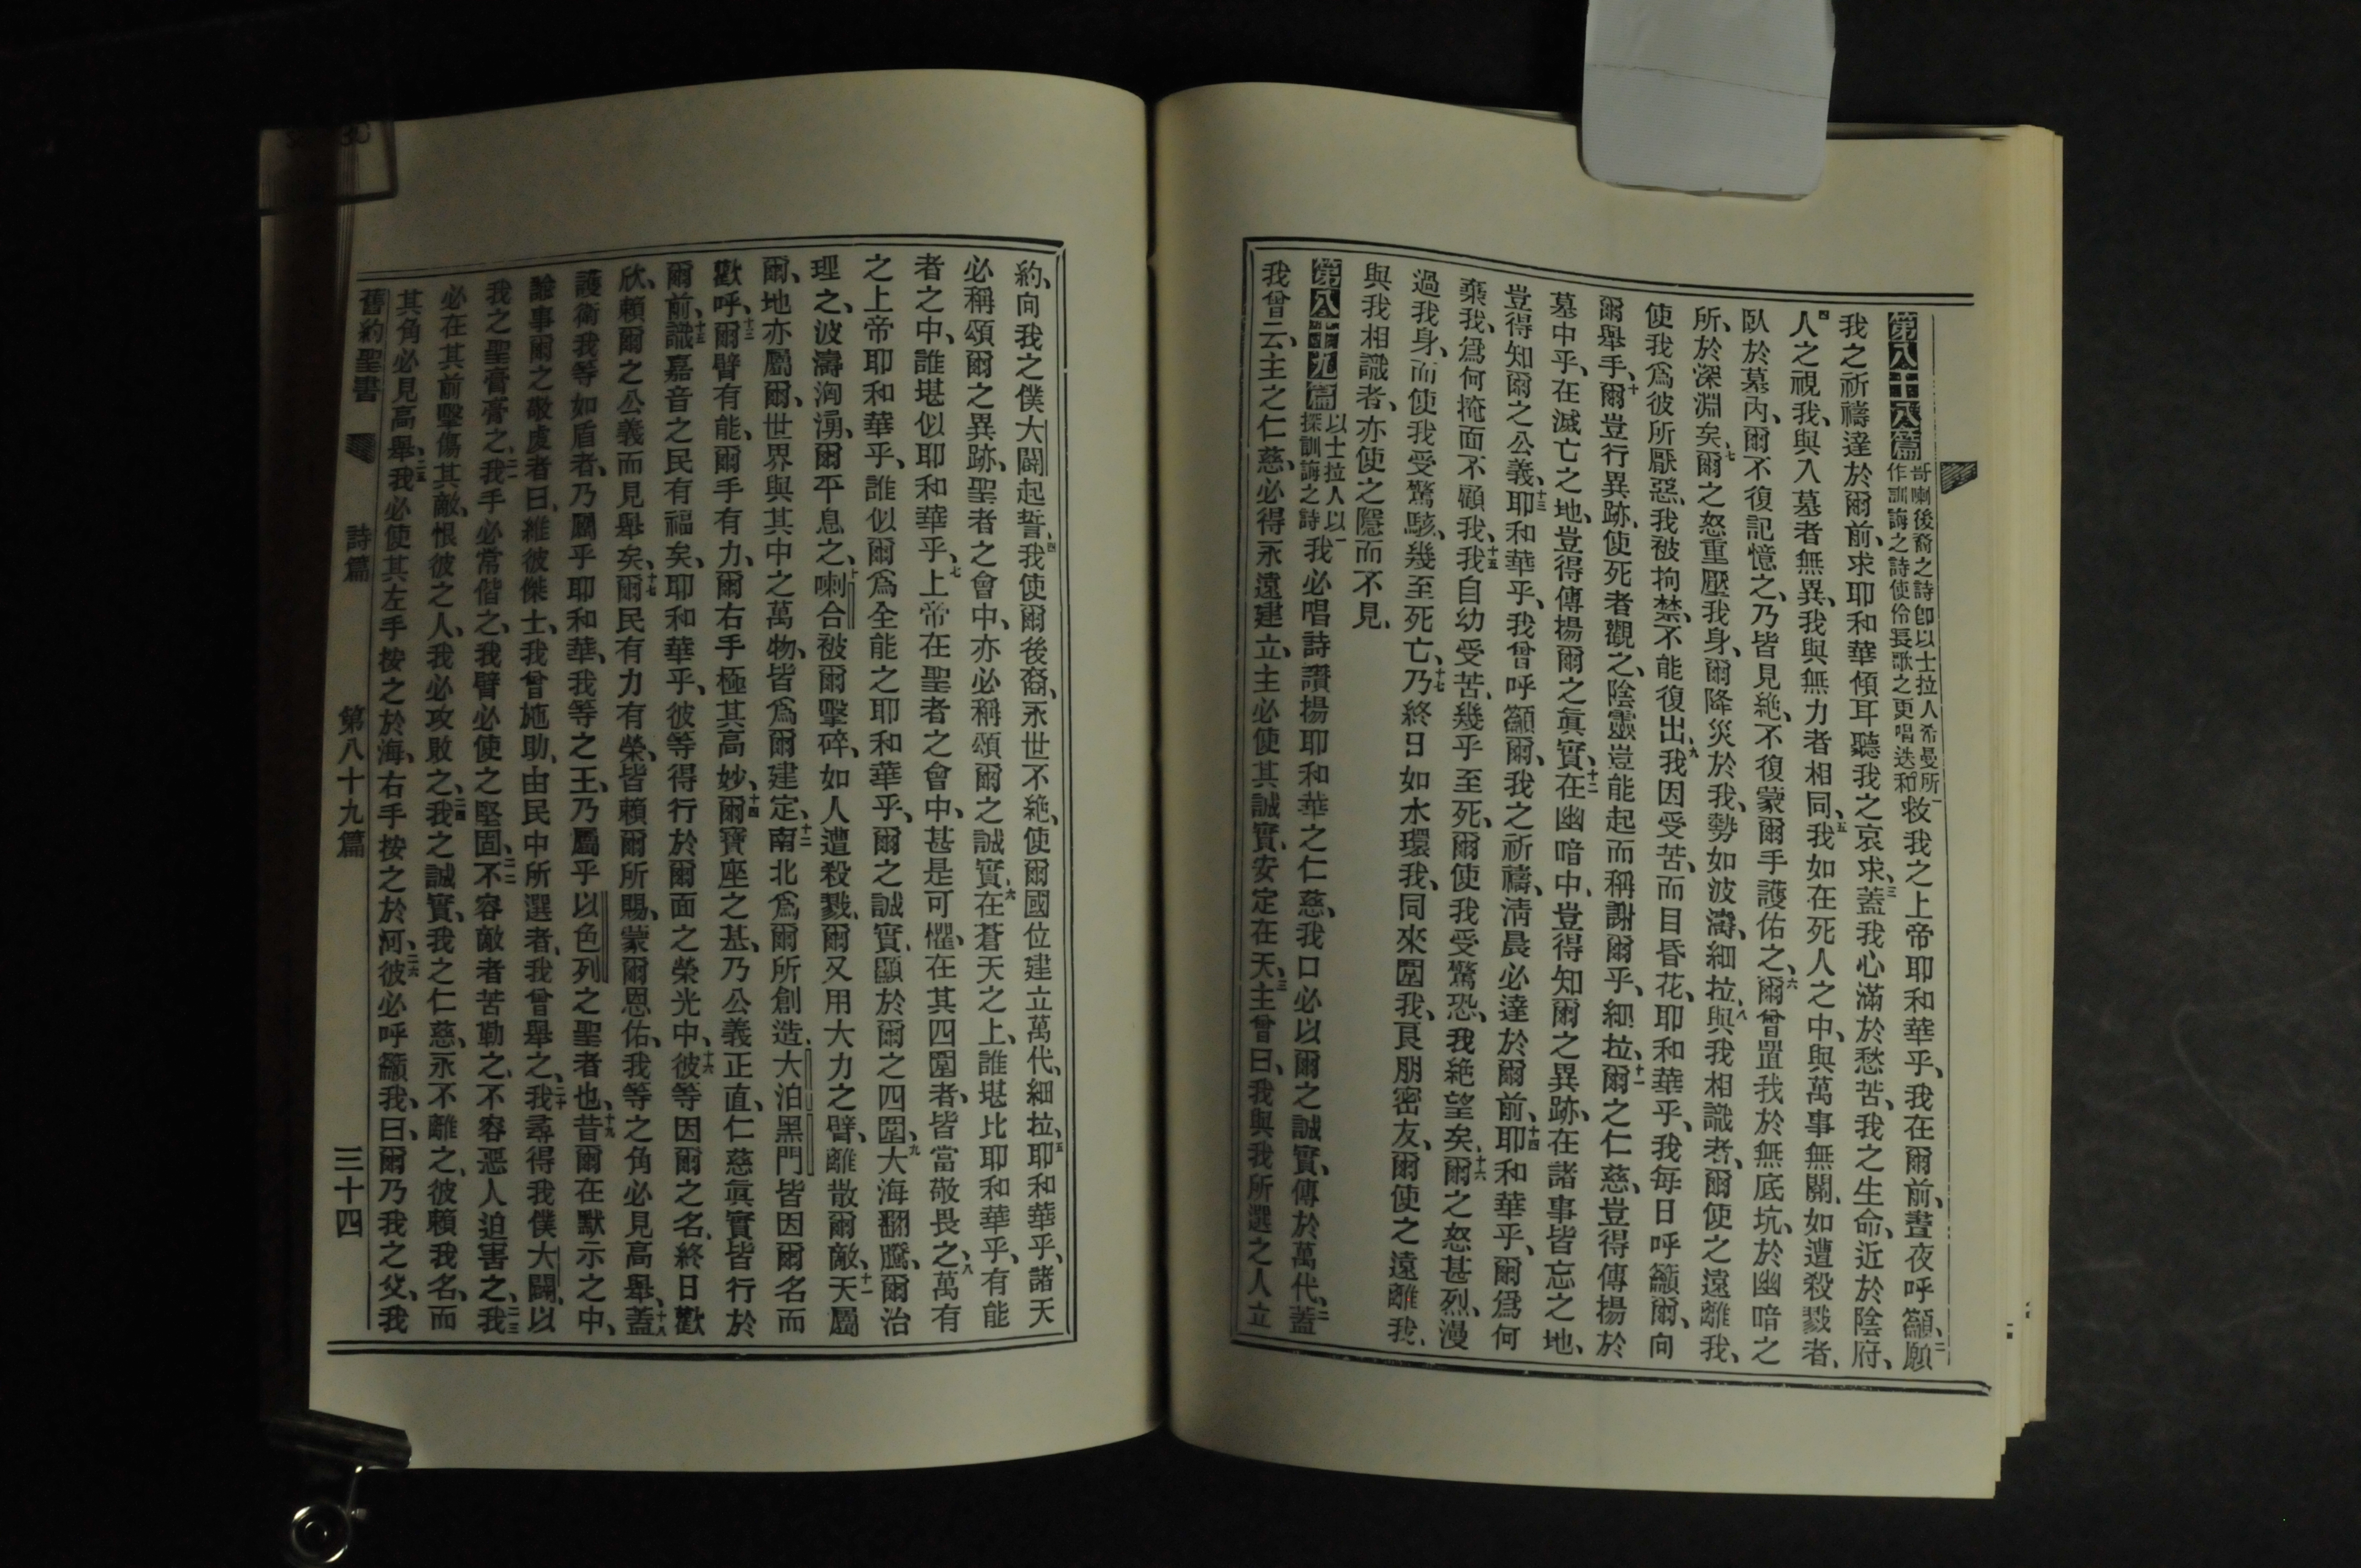 第八十八篇 哥喇後裔之詩卽以士拉人希曼所作訓誨之詩使伶長歌之更唱迭和 一救我之上帝耶和華乎、我在爾前、晝夜呼籲、二願
我之祈禱達於爾前、求耶和華傾耳聽我之哀求、三蓋我心滿於愁苦、我之生命、近於陰府、
四人之視我、與入墓者無異、我與無力者相同、五我如在死人之中、與萬事無關、如遭殺戮者、
臥於墓內、爾不復記憶之、乃皆見絶、不復蒙爾手護佑之、六爾曾置我於無底坑、於幽暗之
所、於深淵矣、七爾之怒重壓我身、爾降災於我、勢如波濤、細拉、八與我相識者、爾使之遠離我、
使我爲彼所厭惡、我被拘禁、不能復出、九我因受苦、而目昏花、耶和華乎、我每日呼籲爾、向
爾舉手、十爾豈行異跡、使死者觀之、陰靈豈能起而稱謝爾乎、細拉、十一爾之仁慈、豈得傳揚於
墓中乎、在滅亡之地、豈得傳揚爾之眞實、十二在幽暗中、豈得知爾之異跡、在諸事皆忘之地、
豈得知爾之公義、十三耶和華乎、我曾呼籲爾、我之祈禱、淸晨必達於爾前、十四耶和華乎、爾爲何
棄我、爲何掩面不顧我、十五我自幼受苦、幾乎至死、爾使我受驚恐、我絶望矣、十六爾之怒甚烈、漫
過我身、而使我受驚駭、幾至死亡、十七乃終日如水環我、同來圍我、十八良朋密友、爾使之遠離我、
與我相識者、亦使之隱而不見、
第八十九篇 以士拉人以探訓誨之詩 一我必唱詩讚揚耶和華之仁慈、我口必以爾之誠實、傳於萬代、二蓋
我曾云、主之仁慈、必得永遠建立、主必使其誠實、安定在天、三主曾曰、我與我所選之人立
約、向我之僕大闢起誓、四我使爾後裔、永世不絶、使爾國位建立萬代、細拉、五耶和華乎、諸天
必稱頌爾之異跡、聖者之會中、亦必稱頌爾之誠實、六在蒼天之上、誰堪比耶和華乎、有能
者之中、誰堪似耶和華乎、七上帝在聖者之會中、甚是可懼、在其四圍者、皆當敬畏之、八萬有
之上帝耶和華乎、誰似爾爲全能之耶和華乎、爾之誠實、顯於爾之四圍、九大海翻騰、爾治
理之、波濤洶湧、爾平息之、十喇合被爾擊碎、如人遭殺戮、爾又用大力之臂、離散爾敵、十一天屬
爾、地亦屬爾、世界與其中之萬物、皆爲爾建定、十二南北爲爾所創造、大泊黑門皆因爾名而
歡呼、十三爾臂有能、爾手有力、爾右手極其高妙、十四爾寶座之基、乃公義正直、仁慈眞實皆行於
爾前、十五識嘉音之民有福矣、耶和華乎、彼等得行於爾面之榮光中、十六彼等因爾之名、終日歡
欣、賴爾之公義而見舉矣、十七爾民有力有榮、皆賴爾所賜、蒙爾恩佑、我等之角必見高舉、十八蓋
護衞我等如盾者、乃屬乎耶和華、我等之王、乃屬乎以色列之聖者也、十九昔爾在默示之中、
諭事爾之敬虔者曰、維彼傑士、我曾施助、由民中所選者、我曾舉之、二十我尋得我僕大闢、以
我之聖膏膏之、二一我手必常偕之、我臂必使之堅固、二二不容敵者苦勒之、不容惡人迫害之、二三我
必在其前擊傷其敵、恨彼之人、我必攻敗之、二四我之誠實、我之仁慈、永不離之、彼賴我名、而
其角必見高舉、二五我必使其左手按之於海、右手按之於河、二六彼必呼籲我、曰、爾乃我之父、我
舊約聖書 詩篇 第八十九篇 三十四